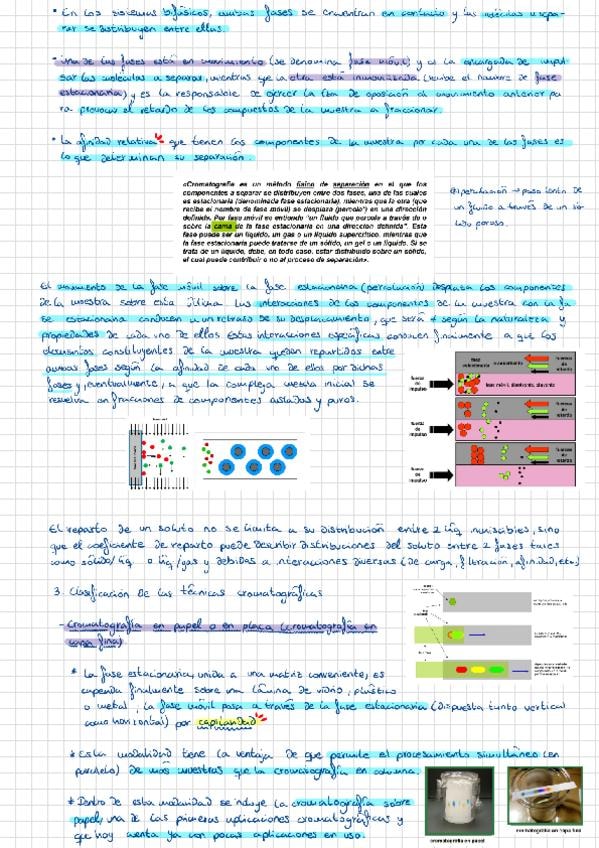 * En los sistemas bifásicos, ambas fases se encuentran en contacto y las moléculas a sepa-
rar se distribuyen entre ellas.
* Una de las fases está en movimiento (se denomina fase móvil) y es la encargada de impul-
sar las moléculas a separar, mientras que la otra está inmovilizada (recibe el nombre de fase
estacionaria) y es la responsable de ejercer la fza de oposición al movimiento anterior pa
ra provocar el retardo de los compuestos de la muestra a fraccionar.
* La afinidad relativa que tienen los componentes de la muestra por cada una de las fases es
lo que determinan su separación.
«Cromatografía es un método físico de separación en el que los
componentes a separar se distribuyen entre dos fases, una de las cuales
es estacionaria (denominada fase estacionaria), mientras que la otra (que
recibe el nombre de fase móvil) se desplaza (percola*) en una dirección
definida. Por fase móvil se entiende "un fluido que percola a través de o
sobre la cama de la fase estacionaria en una dirección definida". Esta
fase puede ser un líquido, un gas o un líquido supercrítico, mientras que
la fase estacionaria puede tratarse de un sólido, un gel o un líquido. Si se
trata de un líquido, debe, en todo caso, estar distribuido sobre un sólido,
el cual puede contribuir o no al proceso de separación».
percolación → paso lento de
un fluido a través de un só-
lido poroso.
El movimiento de la fase móvil sobre la fase estacionaria (percolación) desplaza los componentes
de la muestra sobre esta última. Las interacciones de los componentes de la muestra con la fa
se estacionaria conducen a un retraso de su desplazamiento, que será ≠ según la naturaleza y
propiedades de cada uno de ellos. Estas interacciones específicas conducen finalmente a que los
elementos constituyentes de la muestra queden repartidos entre
ambas fases según la afinidad de cada uno de ellos por dichas
fases y, eventualmente, a que la compleja mezcla inicial se
resuelva en fracciones de componentes aislados y puros.
fase estacionaria
fuerzas de retardo
fuerza de impulso
fase móvil, disolvente, eluyente
fuerza de impulso
fuerzas de retardo
fuerza de impulso
fuerzas de retardo
El reparto de un soluto no se limita a su distribución entre 2 líq. inmiscibles, sino
que el coeficiente de reparto puede describir distribuciones del soluto entre 2 fases tales
como sólido/líq. o líq/gas y debidas a interacciones diversas (de carga, filtración, afinidad, etc.)
3. Clasificación de las técnicas cromatográficas
- Cromatografía en papel o en placa (cromatografía en
capa fina)
* La fase estacionaria, unida a una matriz conveniente, es
extendida finalmente sobre una lámina de vidrio, plástico
o metal, la fase móvil pasa a través de la fase estacionaria (dispuesta tanto vertical
como horizontal) por capilaridad
* Esta modalidad tiene la ventaja de que permite el procesamiento simultáneo (en
paralelo) de más muestras que la cromatografía en columna.
* Dentro de esta modalidad se incluye la cromatografía sobre
papel, una de las primeras aplicaciones cromatográficas y
que hoy cuenta ya con pocas aplicaciones en uso.
cromatografía en papel
cromatografía en capa fina